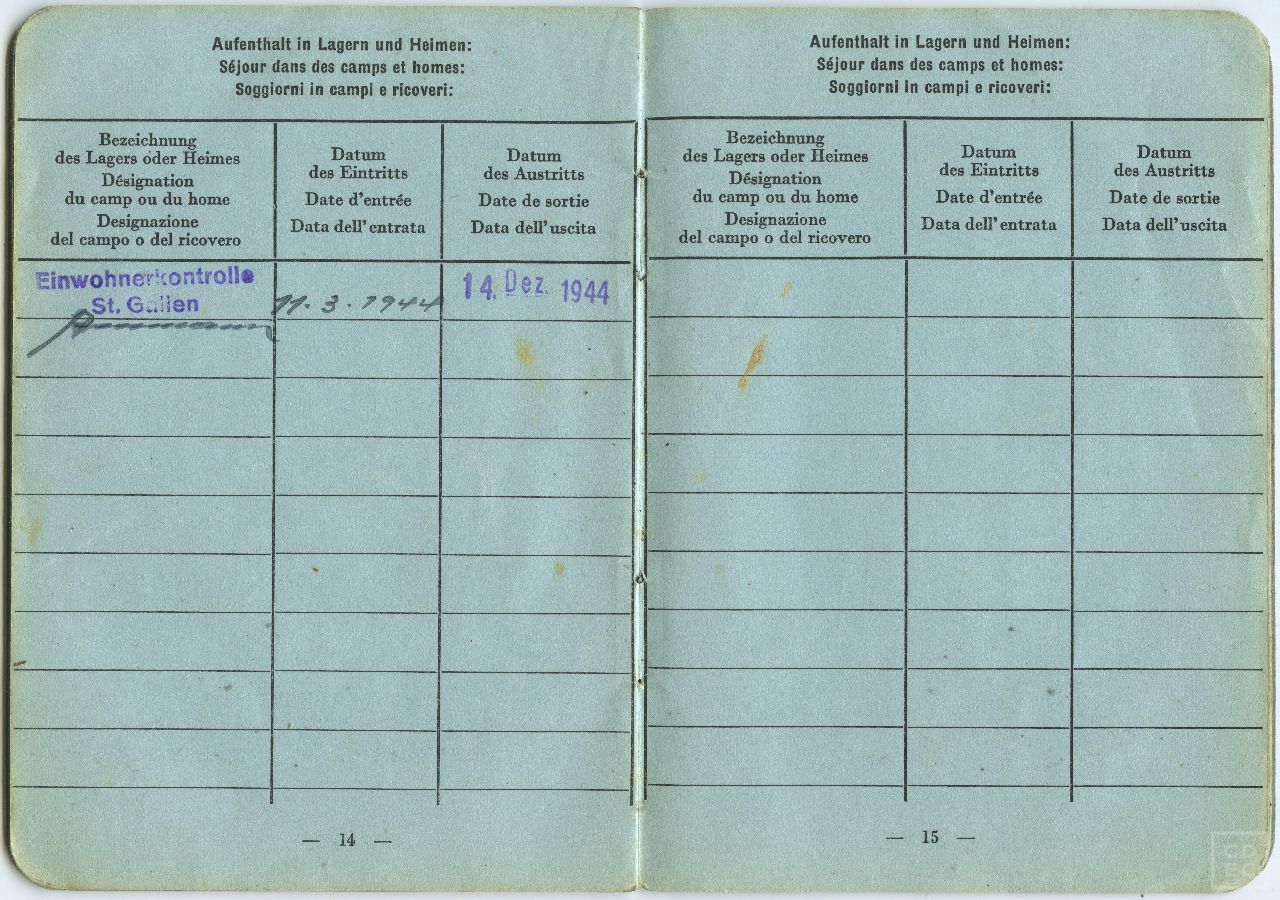 Aufenthalt in Lagern und Heimen:
Séjour dans des camps et homes:
Soggiorni in campi e ricoveri:
Bezeichnung
des Lagers oder Heimes
Désignation
du camp ou du home
Designazione
del campo o del ricovero
Datum
des Eintritts
Date d'entrée
Data dell'entrata
Datum
des Austritts
Date de sortie
Data dell'uscita
Einwohnerkontrolle
St. Gallen
11. 3. 1944
14. Dez. 1944
— 14 —
Aufenthalt in Lagern und Heimen:
Séjour dans des camps et homes:
Soggiorni in campi e ricoveri:
Bezeichnung
des Lagers oder Heimes
Désignation
du camp ou du home
Designazione
del campo o del ricovero
Datum
des Eintritts
Date d'entrée
Data dell'entrata
Datum
des Austritts
Date de sortie
Data dell'uscita
— 15 —